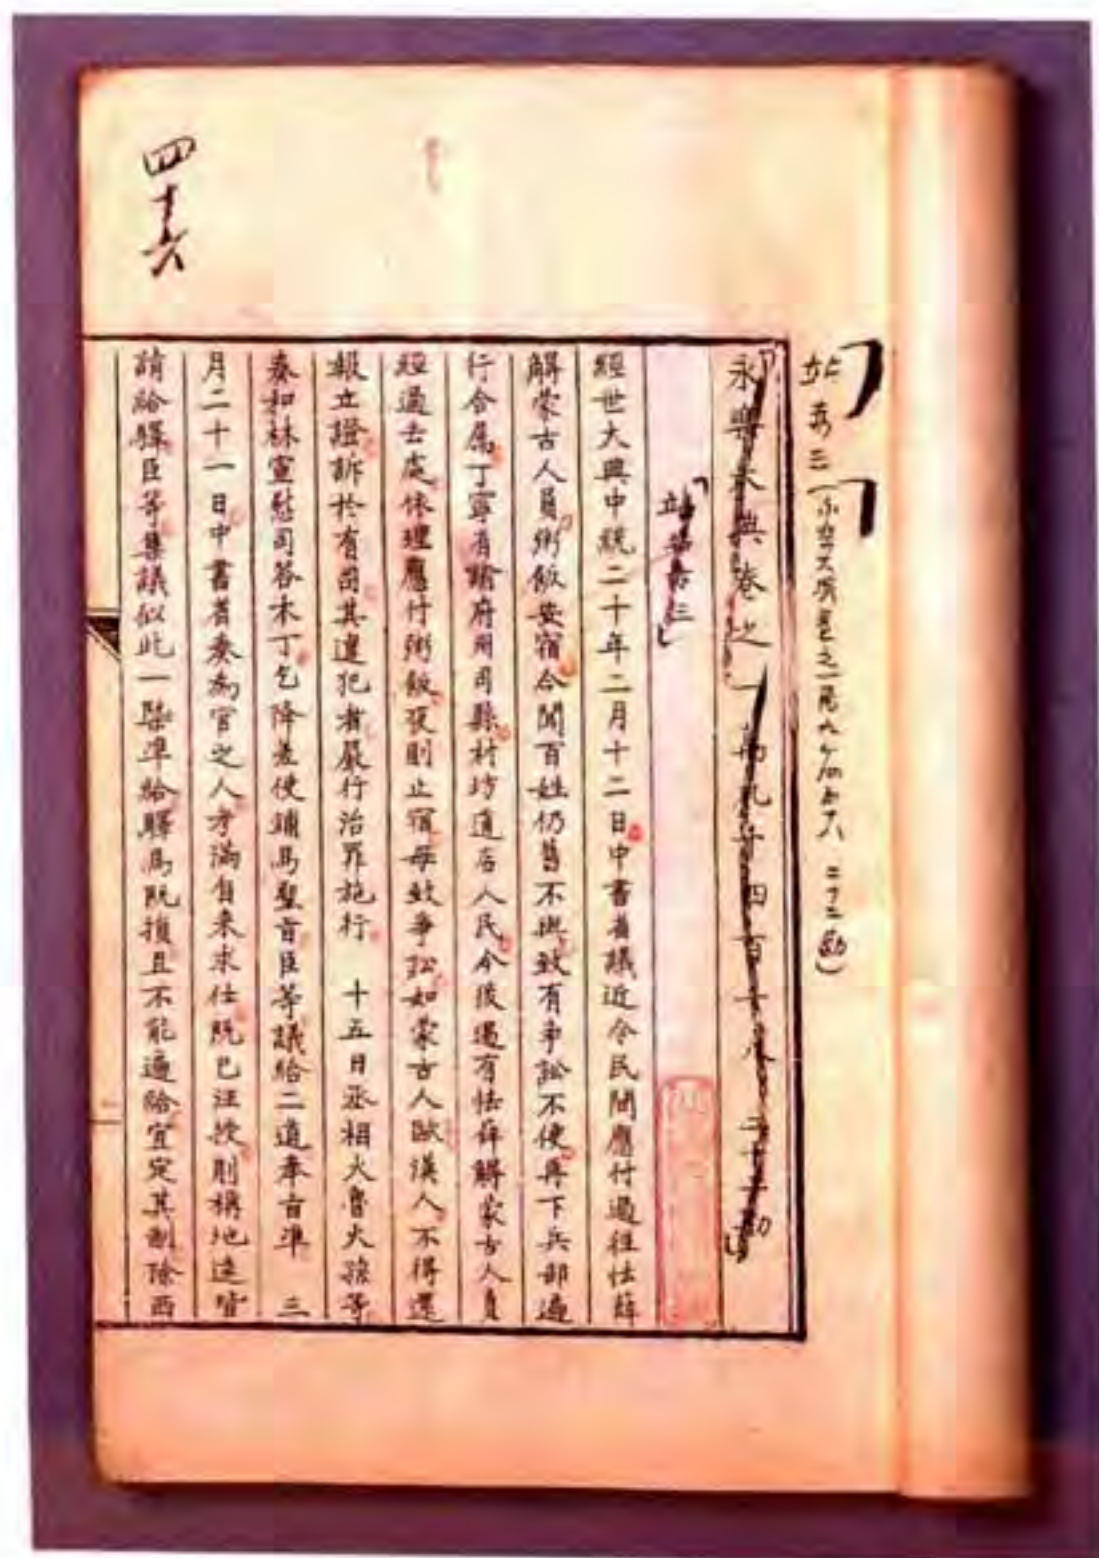 四十六
站赤三
永樂大典卷之一萬九千四百十八 二十二勘
站 站赤三
經世大典中統二十年二月十二日中書省議近令民間應付過往怯薛
解蒙古人員粥飯安宿今聞百姓仍舊不與致有爭訟不便再下兵部遍
行合屬丁寧省諭府州司縣村坊道店人民今後遇有怯薛解蒙古人員
經過去處依理應付粥飯夜則止宿毋致爭訟如蒙古人毆漢人不得還
報立證訴於有司其違犯者嚴行治罪施行 十五日丞相火魯火孫等
奏和林宣慰司答木丁乞降差使鋪馬聖旨臣等議給二道奉旨準 三
月二十一日中書省奏為官之人考滿自來求仕既已注授則稱地遠皆
請給驛臣等集議似此一槩準給驛馬既損且不能遍給宜定其制除西